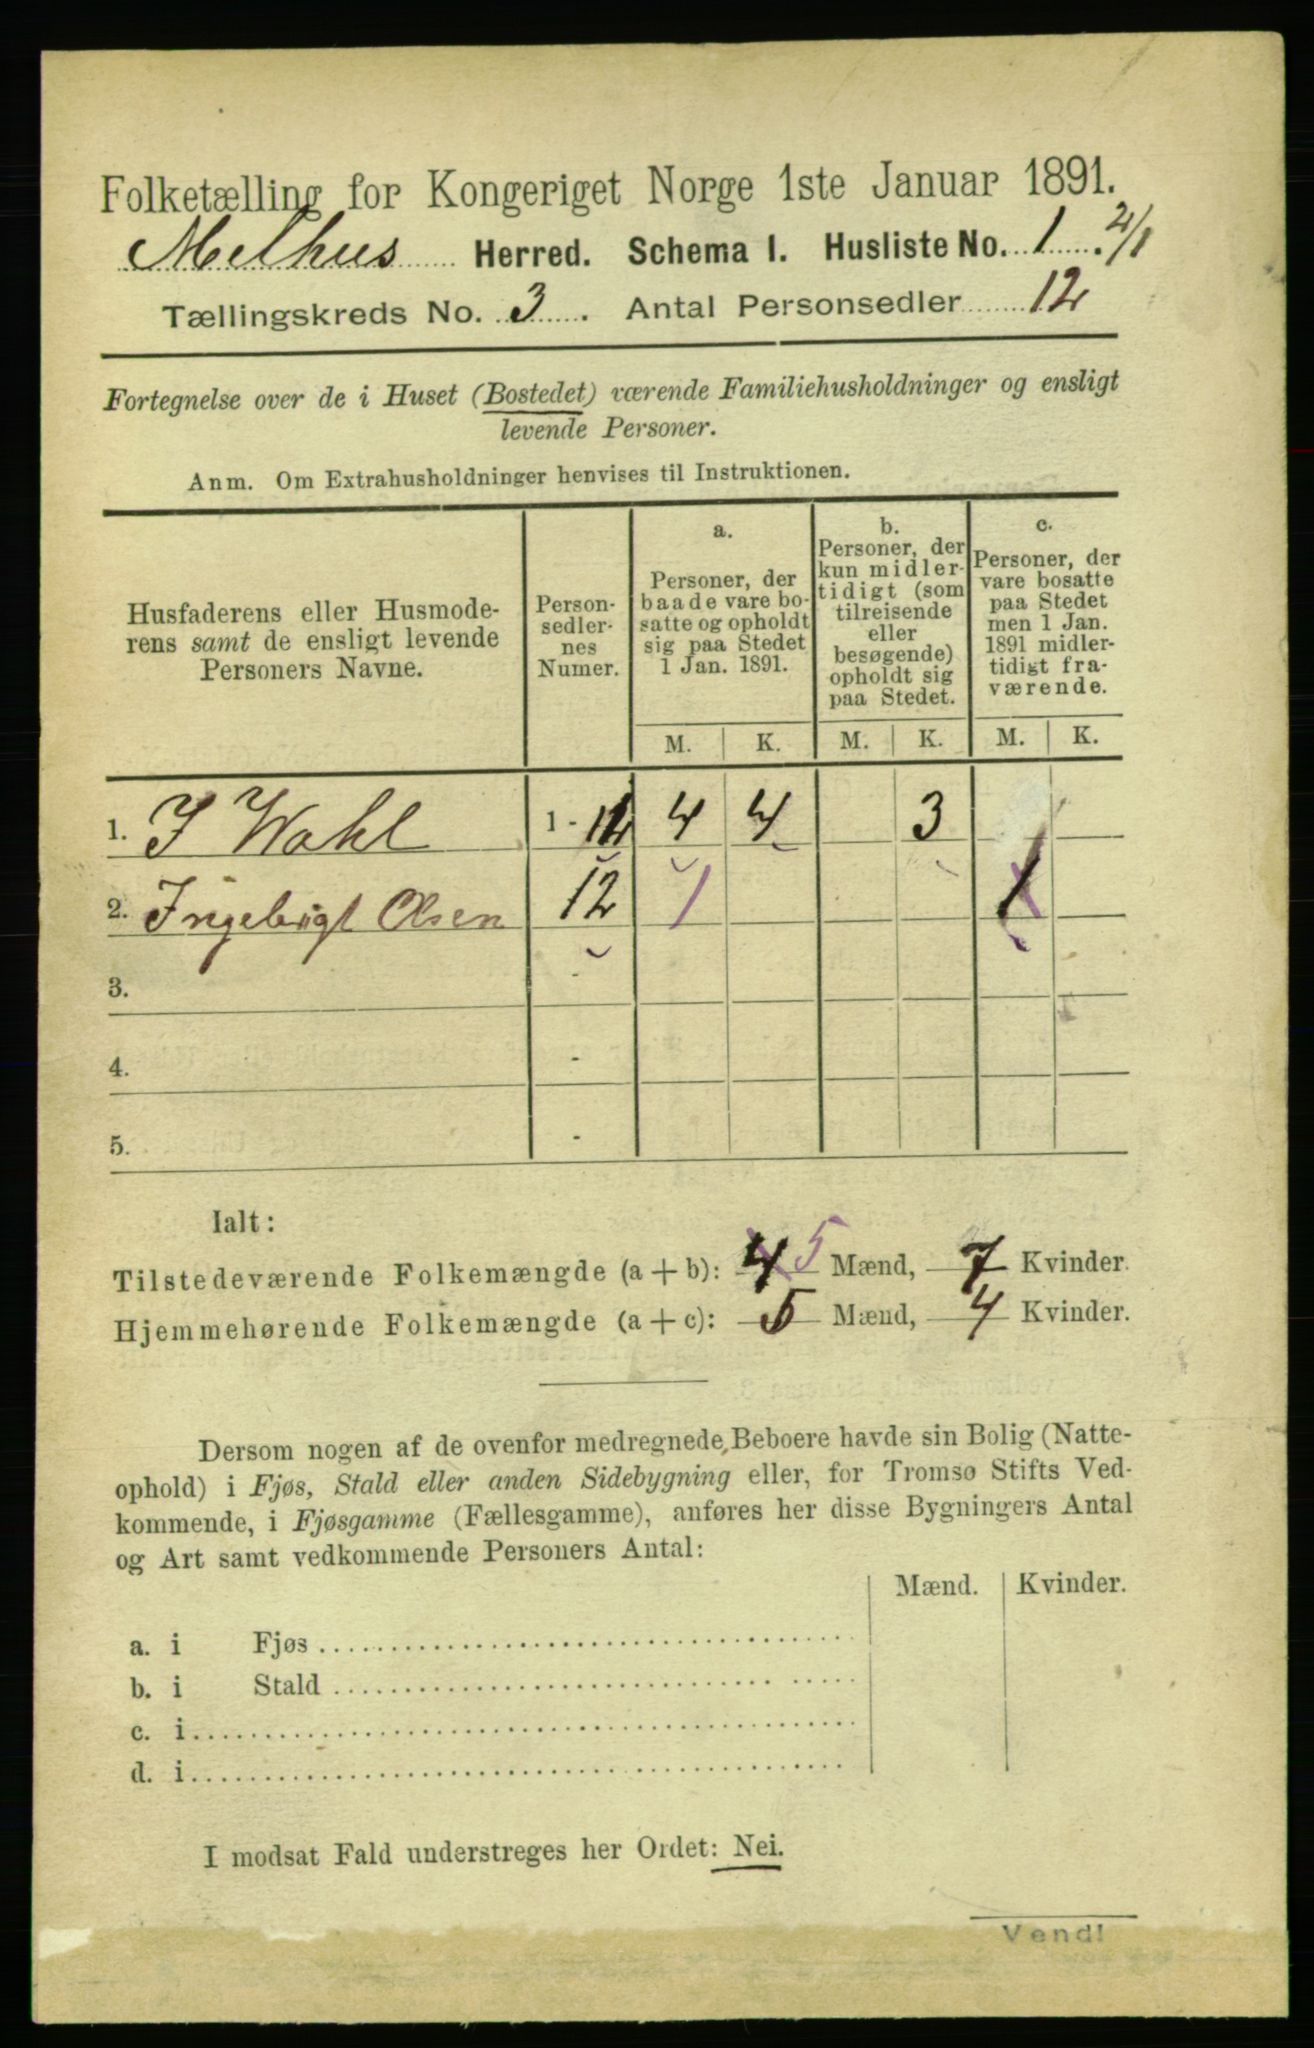 Folketælling for Kongeriget Norge 1ste Januar 1891.
Melhus Herred. Schema I. Husliste No. 1. 2/1
Tællingskreds No. 3. Antal Personsedler 12
Fortegnelse over de i Huset (Bostedet) værende Familiehusholdninger og ensligt
levende Personer.
Anm. Om Extrahusholdninger henvises til Instruktionen.
Husfaderens eller Husmode-
rens samt de ensligt levende
Personers Navne.
Person-
sedler-
nes
Numer.
a.
Personer, der
baade vare bo-
satte og opholdt
sig paa Stedet
1 Jan. 1891.
b.
Personer, der
kun midler-
tidigt (som
tilreisende
eller
besøgende)
opholdt sig
paa Stedet.
c.
Personer, der
vare bosatte
paa Stedet
men 1 Jan.
1891 midler-
tidigt fra-
værende.
M. K. M. K. M. K.
1. I Wahl 1 - 4 4 3
2. Ingebrigt Olsen 12 1 1
3. -
4. -
5. -
Ialt:
Tilstedeværende Folkemængde (a + b): 4 5 Mænd, 7 Kvinder.
Hjemmehørende Folkemængde (a + c): 5 Mænd, 4 Kvinder.
Dersom nogen af de ovenfor medregnede Beboere havde sin Bolig (Natte-
ophold) i Fjøs, Stald eller anden Sidebygning eller, for Tromsø Stifts Ved-
kommende, i Fjøsgamme (Fællesgamme), anføres her disse Bygningers Antal
og Art samt vedkommende Personers Antal:
Mænd. Kvinder.
a. i Fjøs
b. i Stald
c. i
d. i
I modsat Fald understreges her Ordet: Nei.
Vend!